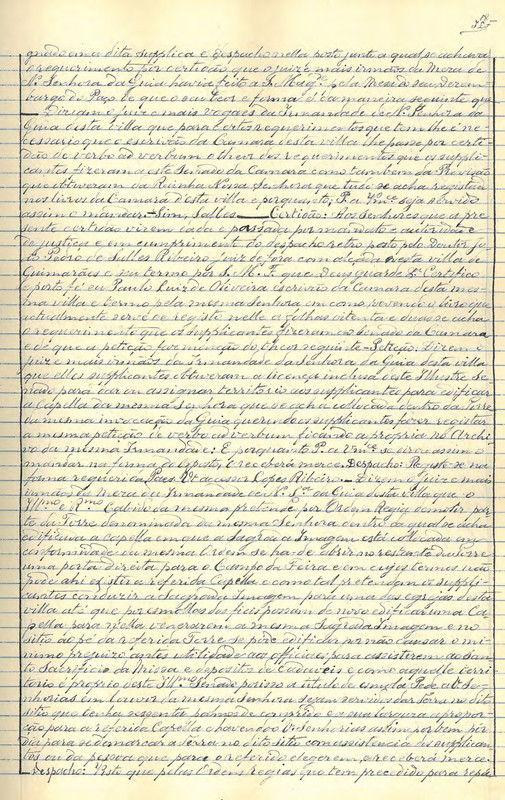 gnado em a dita supplica e despacho nella posto junto a qual se achava
o requerimento por certidão que o juiz e mais irmãos da Meza de
N. Senhora da Guia havia feito a S. Mag.e pela Meza do seu Desem
bargo do Paço de que o seu teor e forma é da maneira seguinte que
Dizem o Juiz e mais vogaes da Irmandade de N. Senhora da
Guia d'esta villa que para certos requerimentos que tem lhe é ne-
cessario que o escrivão da Camara desta villa lhe passe por certi-
dão de verbo ad verbum o theor dos requerimentos que os suppli-
cantes fizeram a este Senado da Camara como tambem da Provisão
que obtiveram da Rainha Nossa Senhora que tudo se acha registado
nos livros da Camara d'esta villa e porquanto: P. a V.mce seja servido
assim o mandar - Sim, Salles. Certidão: Aos Senhores que a pre-
sente certidão virem dada e passada por mandato e autoridade
de justiça e em cumprimento do despacho retro posto pelo Doutor Jo-
sé Pedro de Salles Ribeiro juiz de fora com alçada n'esta villa de
Guimarães e seu termo por S. M. F. que Deus guarde &.a Certifico
e porto fé eu Paulo Luiz de Oliveira escrivão da Camara desta mes-
ma villa e termo pela mesma Senhora em como revendo o livro que
actualmente serve de registo nelle a folhas oitenta e duas se acha
o requerimento que os supplicantes fizeram ao Senado da Camara
e de que a petição faz menção do theor seguinte - Petição: Dizem o
juiz e mais irmãos da Irmandade da Senhora da Guia desta villa
que elles supplicantes obtiveram a licença inclusa deste Illustre Se-
nado para dar ou assignar territorio aos supplicantes para edificar
a Capella da mesma Senhora que se acha collocada dentro da Torre
da mesma invocação da Guia querendo os supplicantes fazer registar
a mesma petição de verbo ad verbum ficando a propria no Archi-
vo da mesma Irmandade: E porquanto P. a V.mces se sirva assim o
mandar na forma do exposto, e receberá mercê. Despacho: Registe-se na
forma requerida Paço Vereador Lopes Ribeiro - Dizem o Juiz e mais
irmãos da Meza da Irmandade de N. S.ra da Guia desta villa que o
Ill.mo e R.mo Cabido da mesma pretende por Ordem Regia demolir par-
te da Torre denominada da mesma Senhora dentro da qual se acha
edificada a capella em que a Sagrada Imagem está collocada em
conformidade da mesma Ordem se ha de abrir no restante da torre
uma porta direita para o Campo da Feira e em cujos termos não
pode ahi existir a referida Capella e como tal pretendem os suppli-
cantes conduzir a Sagrada Imagem para uma das egrejas desta
villa até que por esmollas dos fieis possam de novo edificar uma Ca-
pella para n'ella venerarem a mesma Sagrada Imagem e no
sitio ao pé da referida Torre se pode edificar por não causar o mi-
nimo prejuizo antes utilidade aos officiaes para assistirem ao San-
to Sacrificio da Missa e deposito de cadaveis e como aquelle terri-
torio é proprio deste Ill.mo Senado por isso a titulo de esmola P. a V.
Senhorias em louvor da mesma Senhora sejam servidos dar terra no dito
sitio que tenha sessenta palmos de comprido e a sua largura a propor-
ção para a referida Capella e havendo V.as Senhorias assim por bem por
dia para se demarcar a terra no dito sitio com assistencia dos supplican-
tes ou da pessoa que para o referido elegerem, e receberá mercê.
Despacho: Visto que pelas Ordens regias que tem precedido para repa-